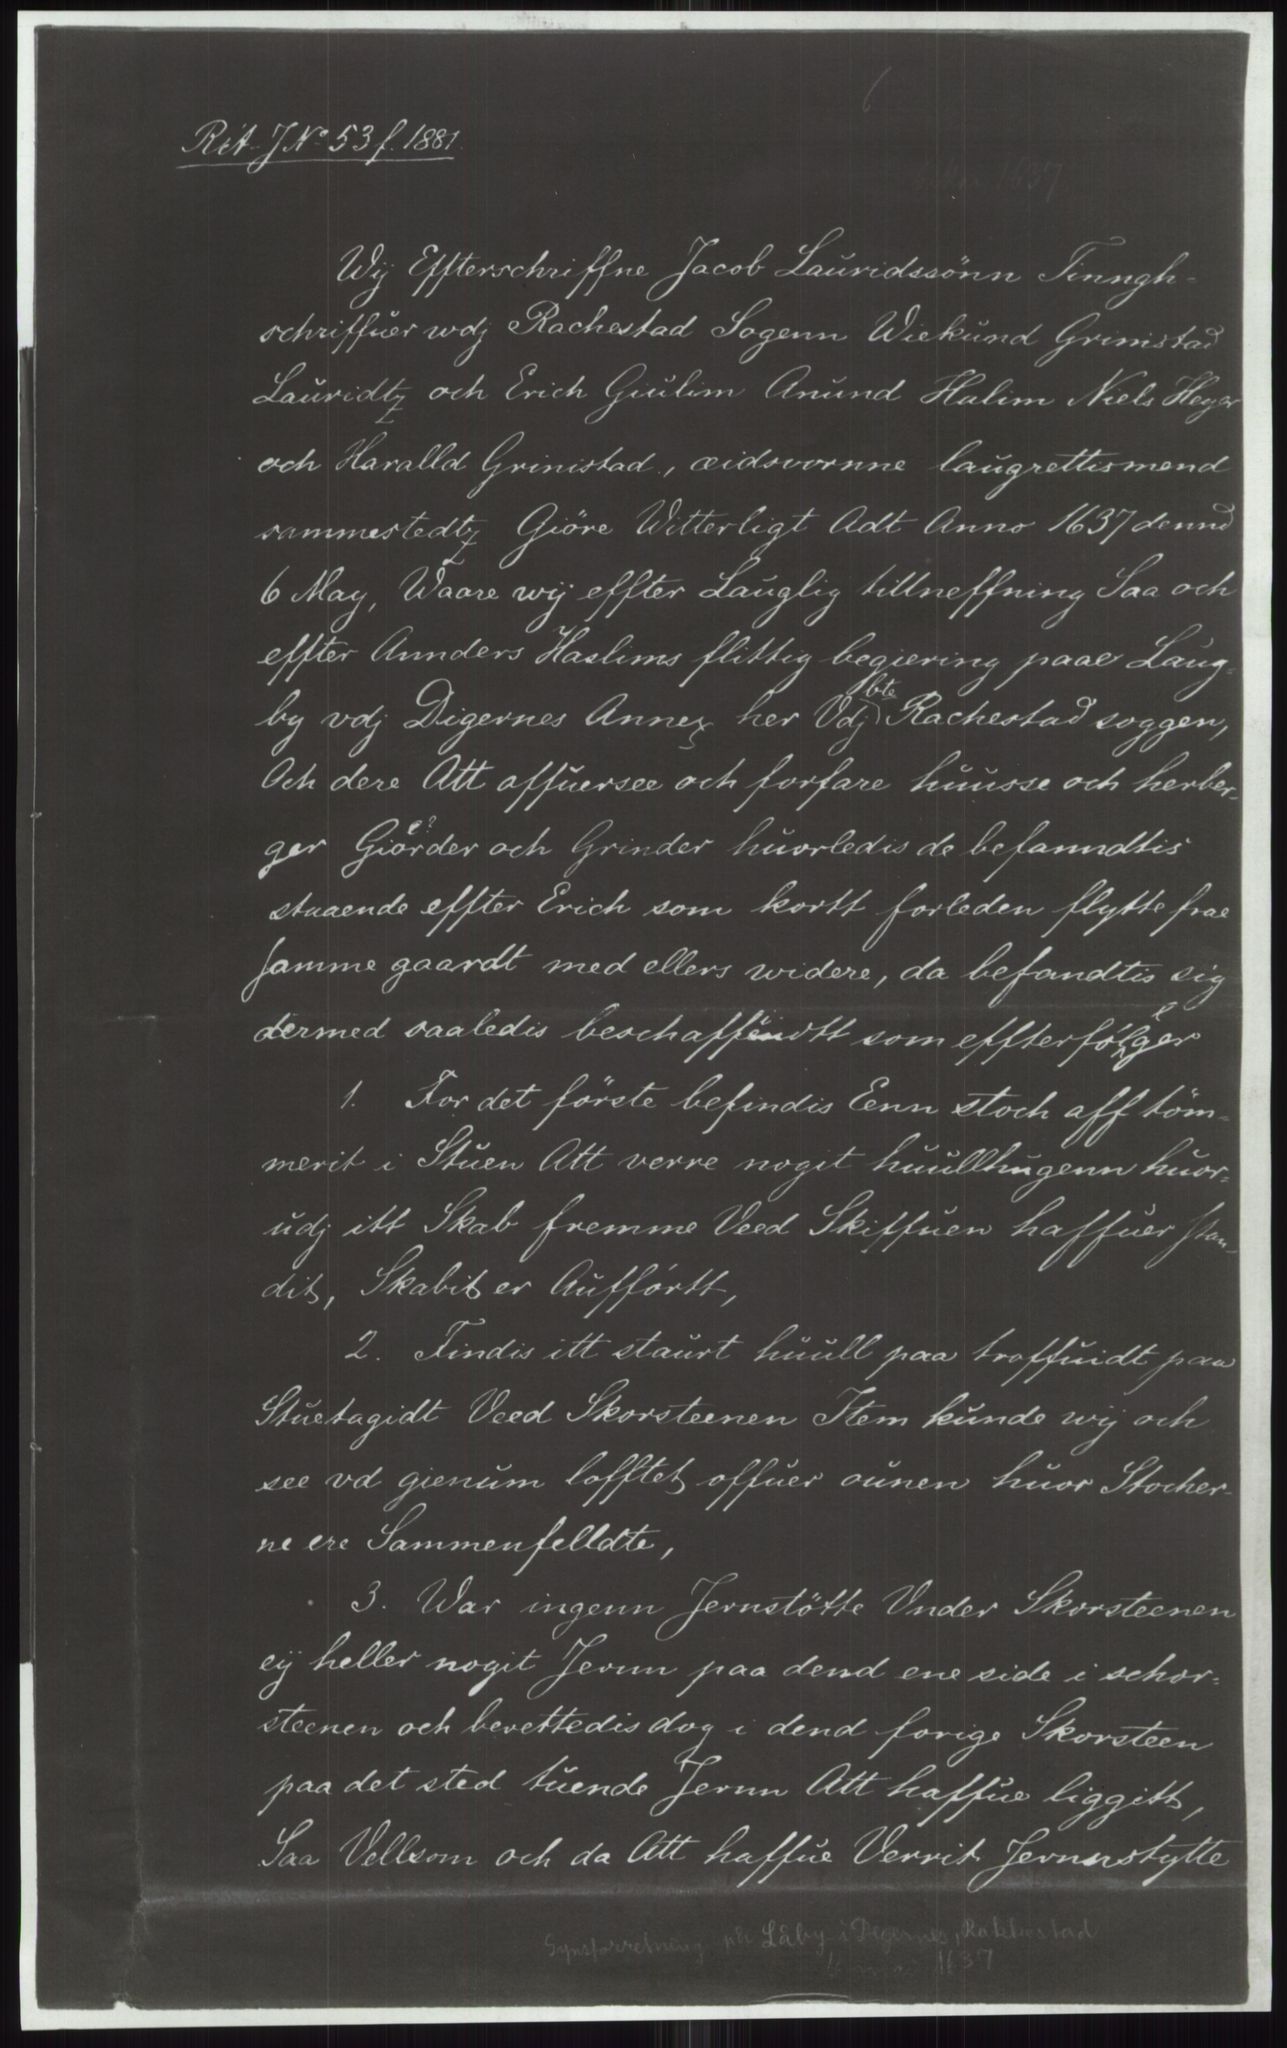 6
Rit. J No 53 f. 1881.
1637
Wij Effterschriffne Jacob Lauridssönn Tinngh-
schriffuer wdj Rachestad Sogenn Wiekund Grimstad
Lauridtz och Erich Giulim Anund Halim Niels Heyer
och Haralld Grinistad, æidsvornne laugrettismend
sammestedtz Giöre Witterligt Adt Anno 1637 dennd
6 May, Waare wij effter Lauglig tillneffning Saa och
effter Annders Haslims flittig begiering paae Laug-
by vdj Digernes Annex her Vdj bte Rachestad soggen,
Och dere Att offuersee och forfare huusse och herber-
ger Giörder och Grinder huorledis de befanndtis
staaende effter Erich som kortt forleden flytte frae
samme gaardt med ellers widere, da befandtis sig
dermed saaledis beschaffendtt som effterfölger
1. For det förste befindis Eenn stoch aff töm-
merit i Stuen Att verre nogit huullhugenn huor-
udj itt Skab fremme Veed Skiffuen haffuer stan-
dit, Skabit er Aufförtt,
2. Findis itt staurt huull paa troffuidt paa
Stuetagidt Veed Skorsteenen Item kunde wij och
see vd gienum lofftet offuer ounen huor Stocher-
ne ere Sammenfelldte,
3. War ingenn Jernstötte Vnder Skorsteenen
eij heller nogit Jernn paa dend ene side i schor-
steenen och berettedis dog i dend forige Skorsteen
paa det sted tuende Jernn Att haffue liggitt,
Saa Vellsom och da Att haffue Verrit Jernnstytte
Synsforretning på Låby i Degernes, Rakkestad
6 mai 1637